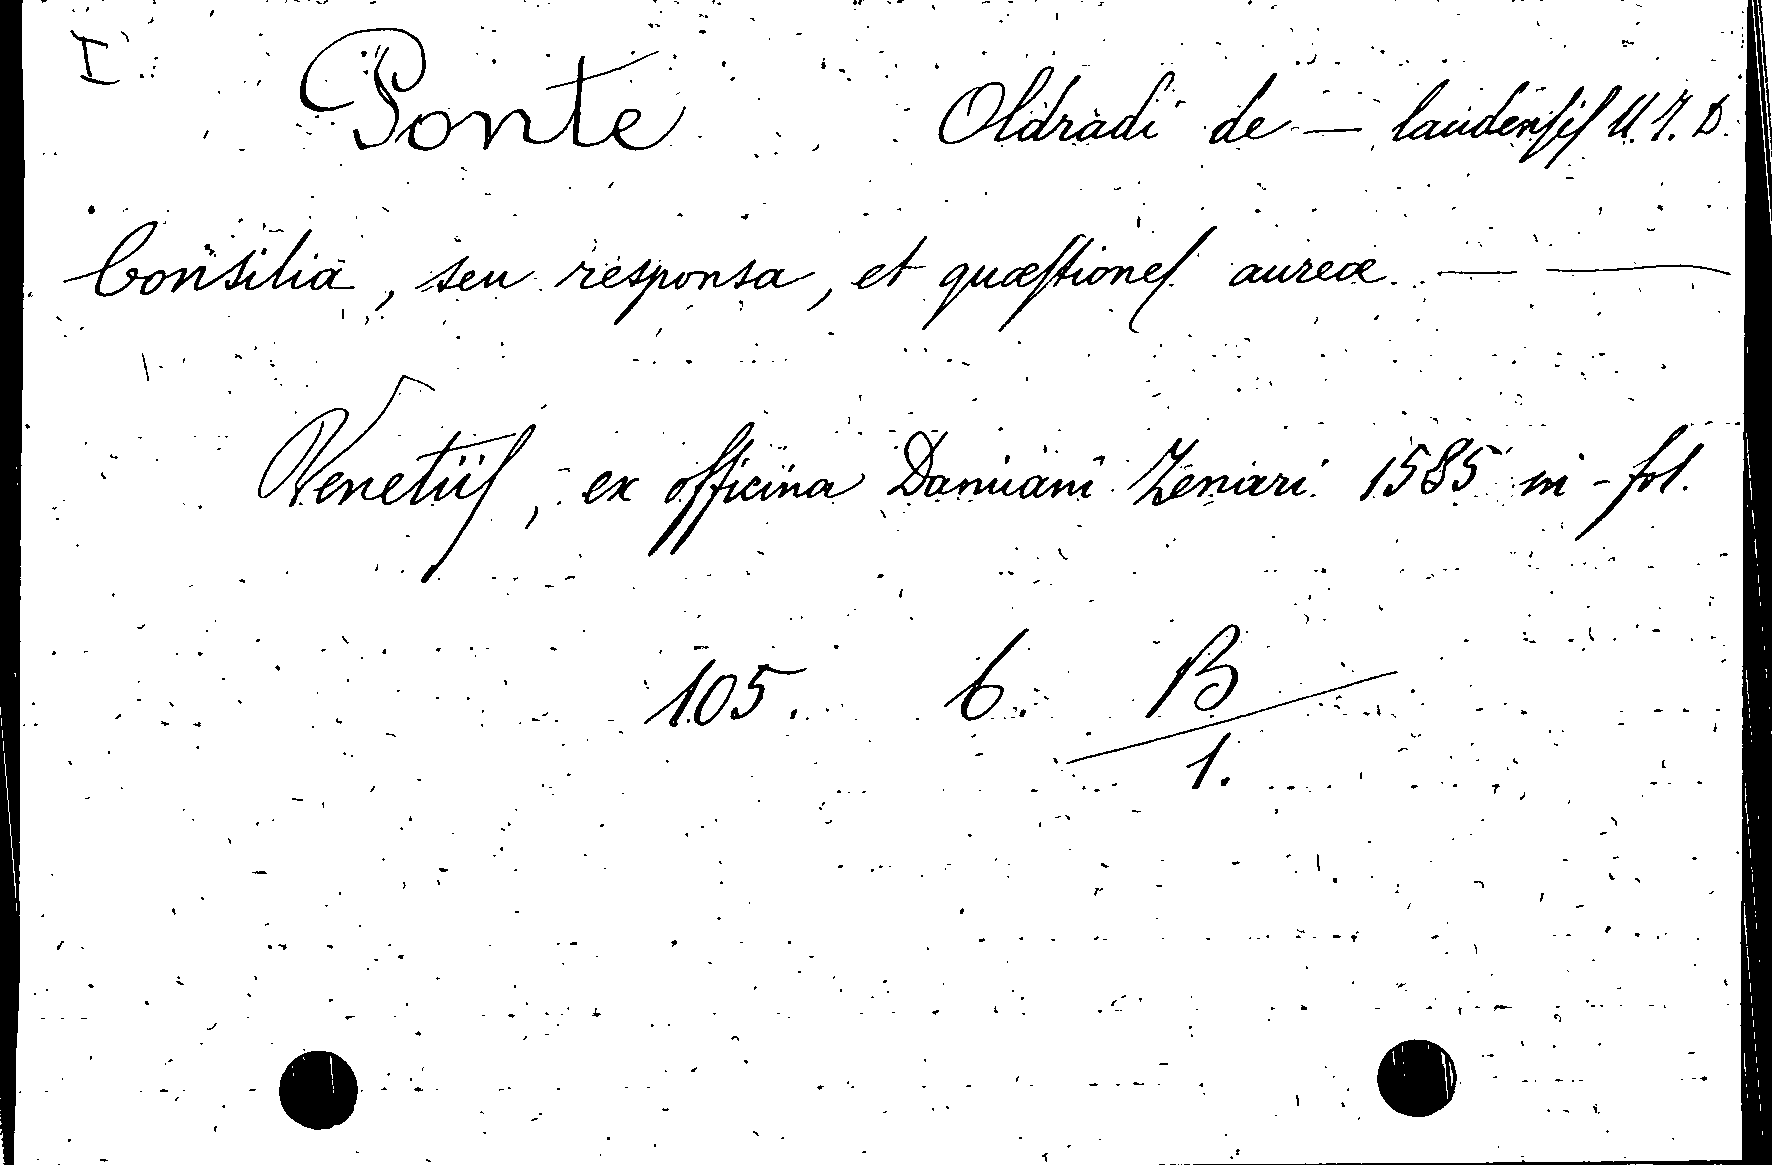 I
Ponte Oldradi de — laudensis U. J. D.
Consilia, seu responsa, et quæstiones aureæ. — —
Venetiis, ex officina Damiani Zenari. 1585 in-fol.
105. 6. B
1.